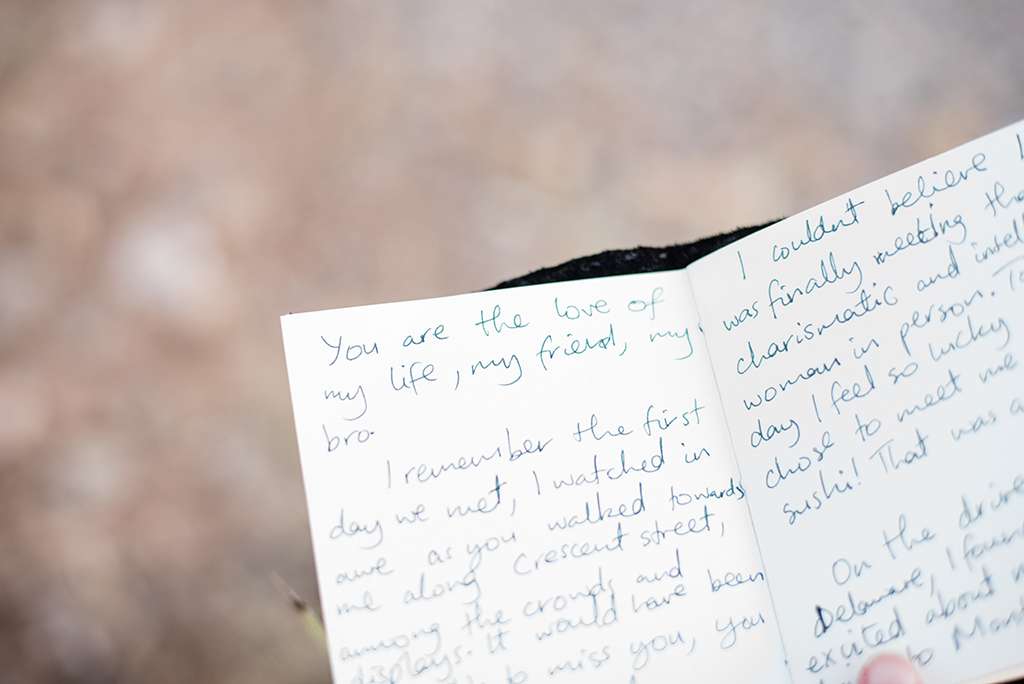 You are the love of
my life, my friend, my
bro.
I remember the first
day we met, I watched in
awe as you walked towards
me along Crescent street,
ammong the crowds and
displays. It would have been
to miss you, you
I couldn't believe I
was finally meeting
charismatic and
woman in person.
day I feel so lucky
chose to meet me
sushi! That was a
On the
Delaware, I
excited about
to